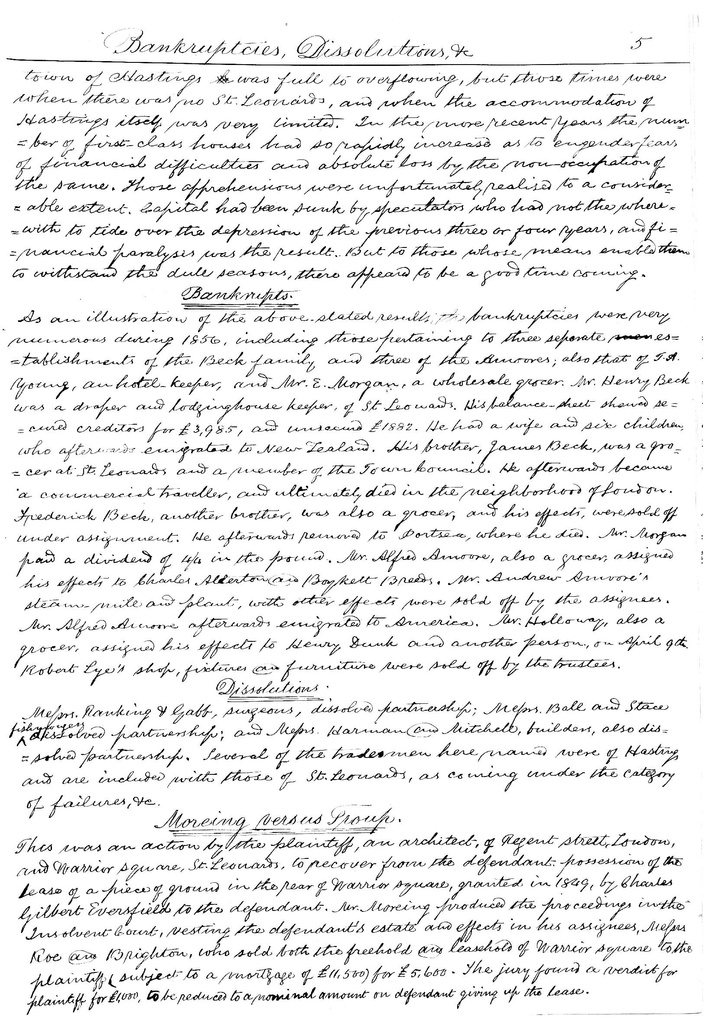 Bankruptcies, Dissolutions, &c 5
town of Hastings was full to overflowing, but those times were
when there was no St. Leonards, and when the accommodation of
Hastings itself was very limited. In the more recent years the num=
=ber of first-class houses had so rapidly increased as to engender fears
of financial difficulties and absolute loss by the non-occupation of
the same. Those apprehensions were unfortunately realised to a consider=
=able extent. Capital had been sunk by speculators who had not the where=
=with to tide over the depression of the previous three or four years, and fi=
=nancial paralysis was the result. But to those whose means enabled them
to withstand the dull seasons, there appeared to be a good time coming.
Bankrupts.
As an illustration of the above-stated results, the bankruptcies were very
numerous during 1856, including those pertaining to three separate es=
=tablishments of the Beck family, and three of the Amoores; also that of T. A.
Young, an hotel-keeper, and Mr. E. Morgan, a wholesale grocer. Mr. Henry Beck
was a draper and lodginghouse keeper, of St Leonards. His balance-sheet shewed se=
=cured creditors for £3,985, and unsecured £1882. He had a wife and six children,
who afterwards emigrated to New Zealand. His brother, James Beck, was a gro=
=cer at St. Leonards and a member of the Town Council. He afterwards became
a commercial traveller, and ultimately died in the neighborhood of London.
Frederick Beck, another brother, was also a grocer, and his effects, were sold off
under assignment. He afterwards removed to Portsea, where he died. Mr. Morgan
paid a dividend of 4/4 in the pound. Mr. Alfred Amoore, also a grocer, assigned
his effects to Charles Alderton and Boykett Breeds. Mr. Andrew Amoore's
steam-mill and plant, with other effects were sold off by the assignees.
Mr. Alfred Amoore afterwards emigrated to America. Mr. Holloway, also a
grocer, assigned his effects to Henry Dunk and another person, on April 9th.
Robert Lye's shop, fixtures and furniture were sold off by the trustees.
Dissolutions.
Messrs. Ranking & Gabb, surgeons, dissolved partnership; Messrs. Ball and Stace
fishmongers dissolved partnership; and Messrs. Harman and Mitchell, builders, also dis=
=solved partnership. Several of the tradesmen here named were of Hastings
and are included with those of St. Leonards, as coming under the category
of failures, &c.
Moreing versus Troup.
This was an action by the plaintiff, an architect, of Regent street, London,
and Warrior square, St. Leonards, to recover from the defendant possession of the
lease of a piece of ground in the rear of Warrior square, granted in 1849, by Charles
Gilbert Eversfield to the defendant. Mr. Moreing produced the proceedings in the
Insolvent Court, vesting the defendant's estate and effects in his assignees, Messrs
Roe and Brighton, who sold both the freehold and leasehold of Warrior square to the
plaintiff (subject to a mortgage of £11,500) for £5,600. The jury found a verdict for
plaintiff for £1,000, to be reduced to a nominal amount on defendant giving up the lease.